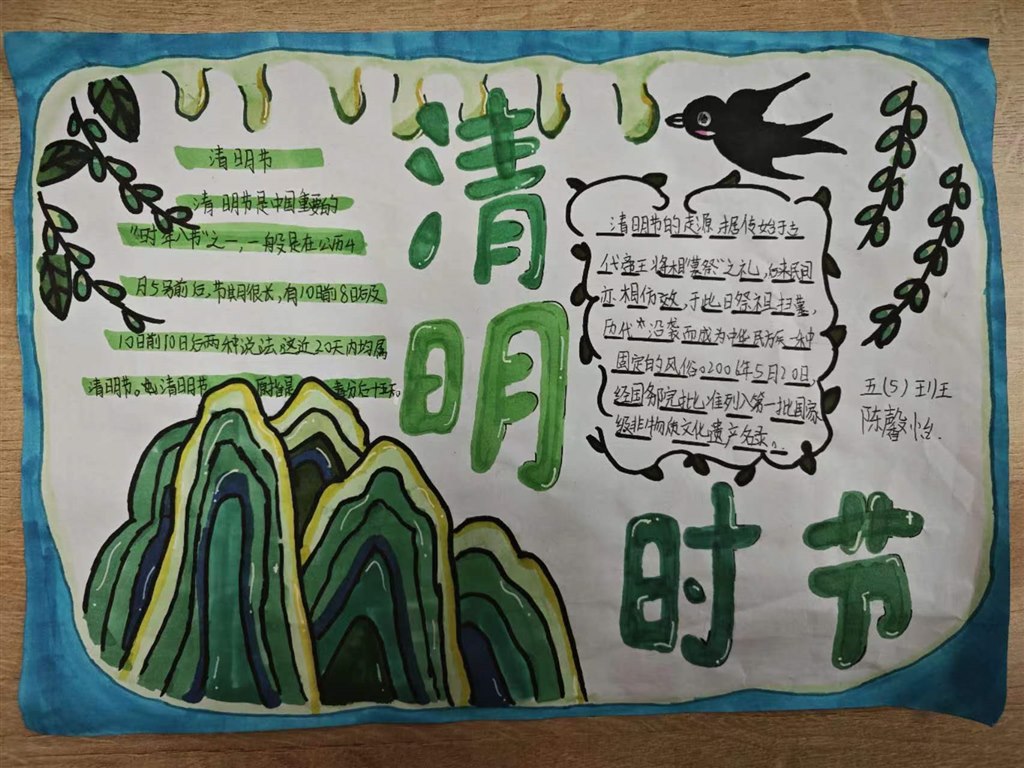 清明时节
清明节
清明节是中国重要的
"时年八节"之一,一般是在公历4
月5号前后,节期很长,有10日前8日后及
10日前10日后两种说法,这近20天内均属
清明节。 清明节 原指是 春分后十五天。
清明节的起源,据传始于古
代帝王将相"墓祭"之礼,后来民间
亦相仿效,于此日祭祖扫墓,
历代沿袭而成为中华民族一种
固定的风俗。2006年5月20日,
经国务院批准列入第一批国家
级非物质文化遗产名录。
五(5)班
陈馨怡.